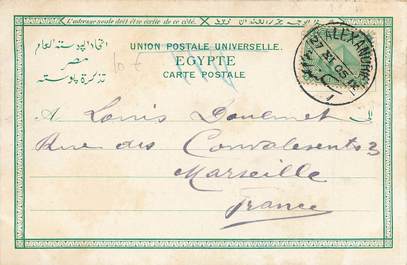 L'adresse seule doit être écrite de ce côté.
اتحاد البوستة العام
مصر
تذكرة بوستة
UNION POSTALE UNIVERSELLE.
EGYPTE
CARTE POSTALE
10 €
ALEXANDRIE
27 XI 05
1
A Louis Doulmet
Rue des Convalescents 3
Marseille
France